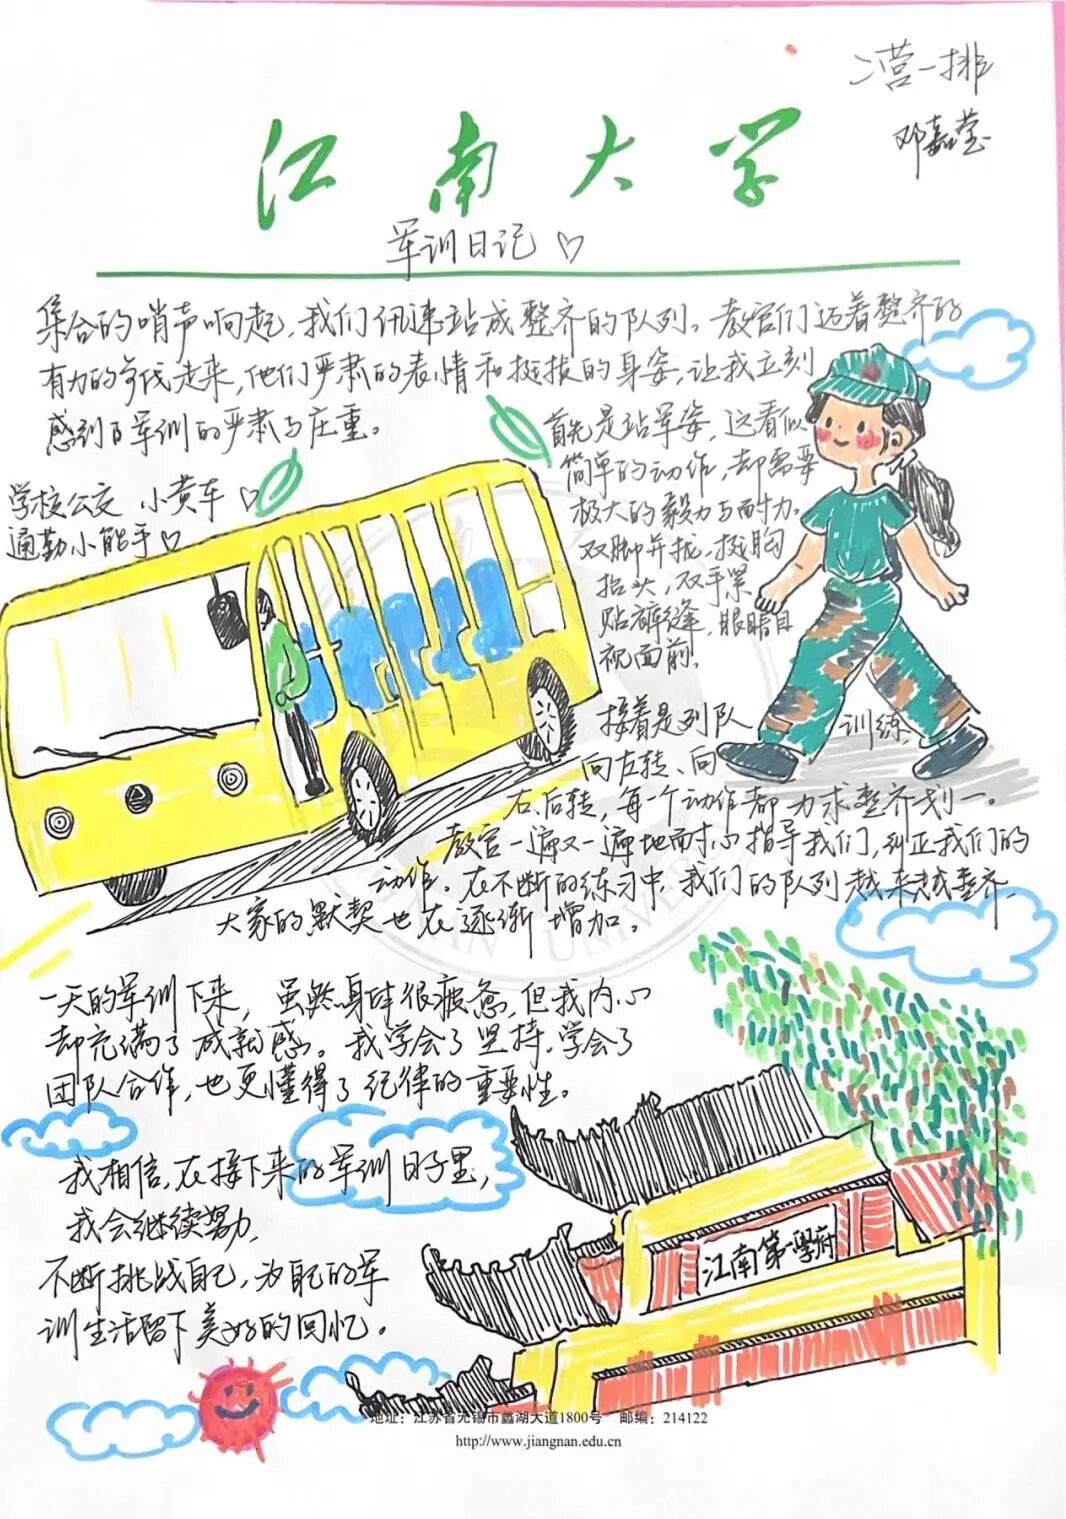 二营一排
邓嘉莹
江南大学
军训日记
集合的哨声响起,我们迅速站成整齐的队列。教官们迈着整齐的
有力的步伐走来,他们严肃的表情和挺拔的身姿,让我立刻
感到了军训的严肃与庄重。
学校公交 小黄车
通勤小能手
首先是站军姿,这看似
简单的动作,却需要
极大的毅力与耐力。
双脚并拢,挺胸
抬头,双手紧
贴裤缝,眼睛目
视面前,
接着是列队训练,
向左转、向
右、后转,每一个动作都力求整齐划一。
教官一遍又一遍地耐心指导我们,纠正我们的
动作。在不断的练习中,我们的队列越来越整齐,
大家的默契也在逐渐增加。
一天的军训下来,虽然身体很疲惫,但我内心
却充满了成就感。我学会了坚持,学会了
团队合作,也更懂得了纪律的重要性。
我相信,在接下来的军训日子里,
我会继续努力,
不断挑战自己,为自己的军
训生活留下美好的回忆。
江南第一学府
地址:江苏省无锡市蠡湖大道1800号 邮编:214122
http://www.jiangnan.edu.cn